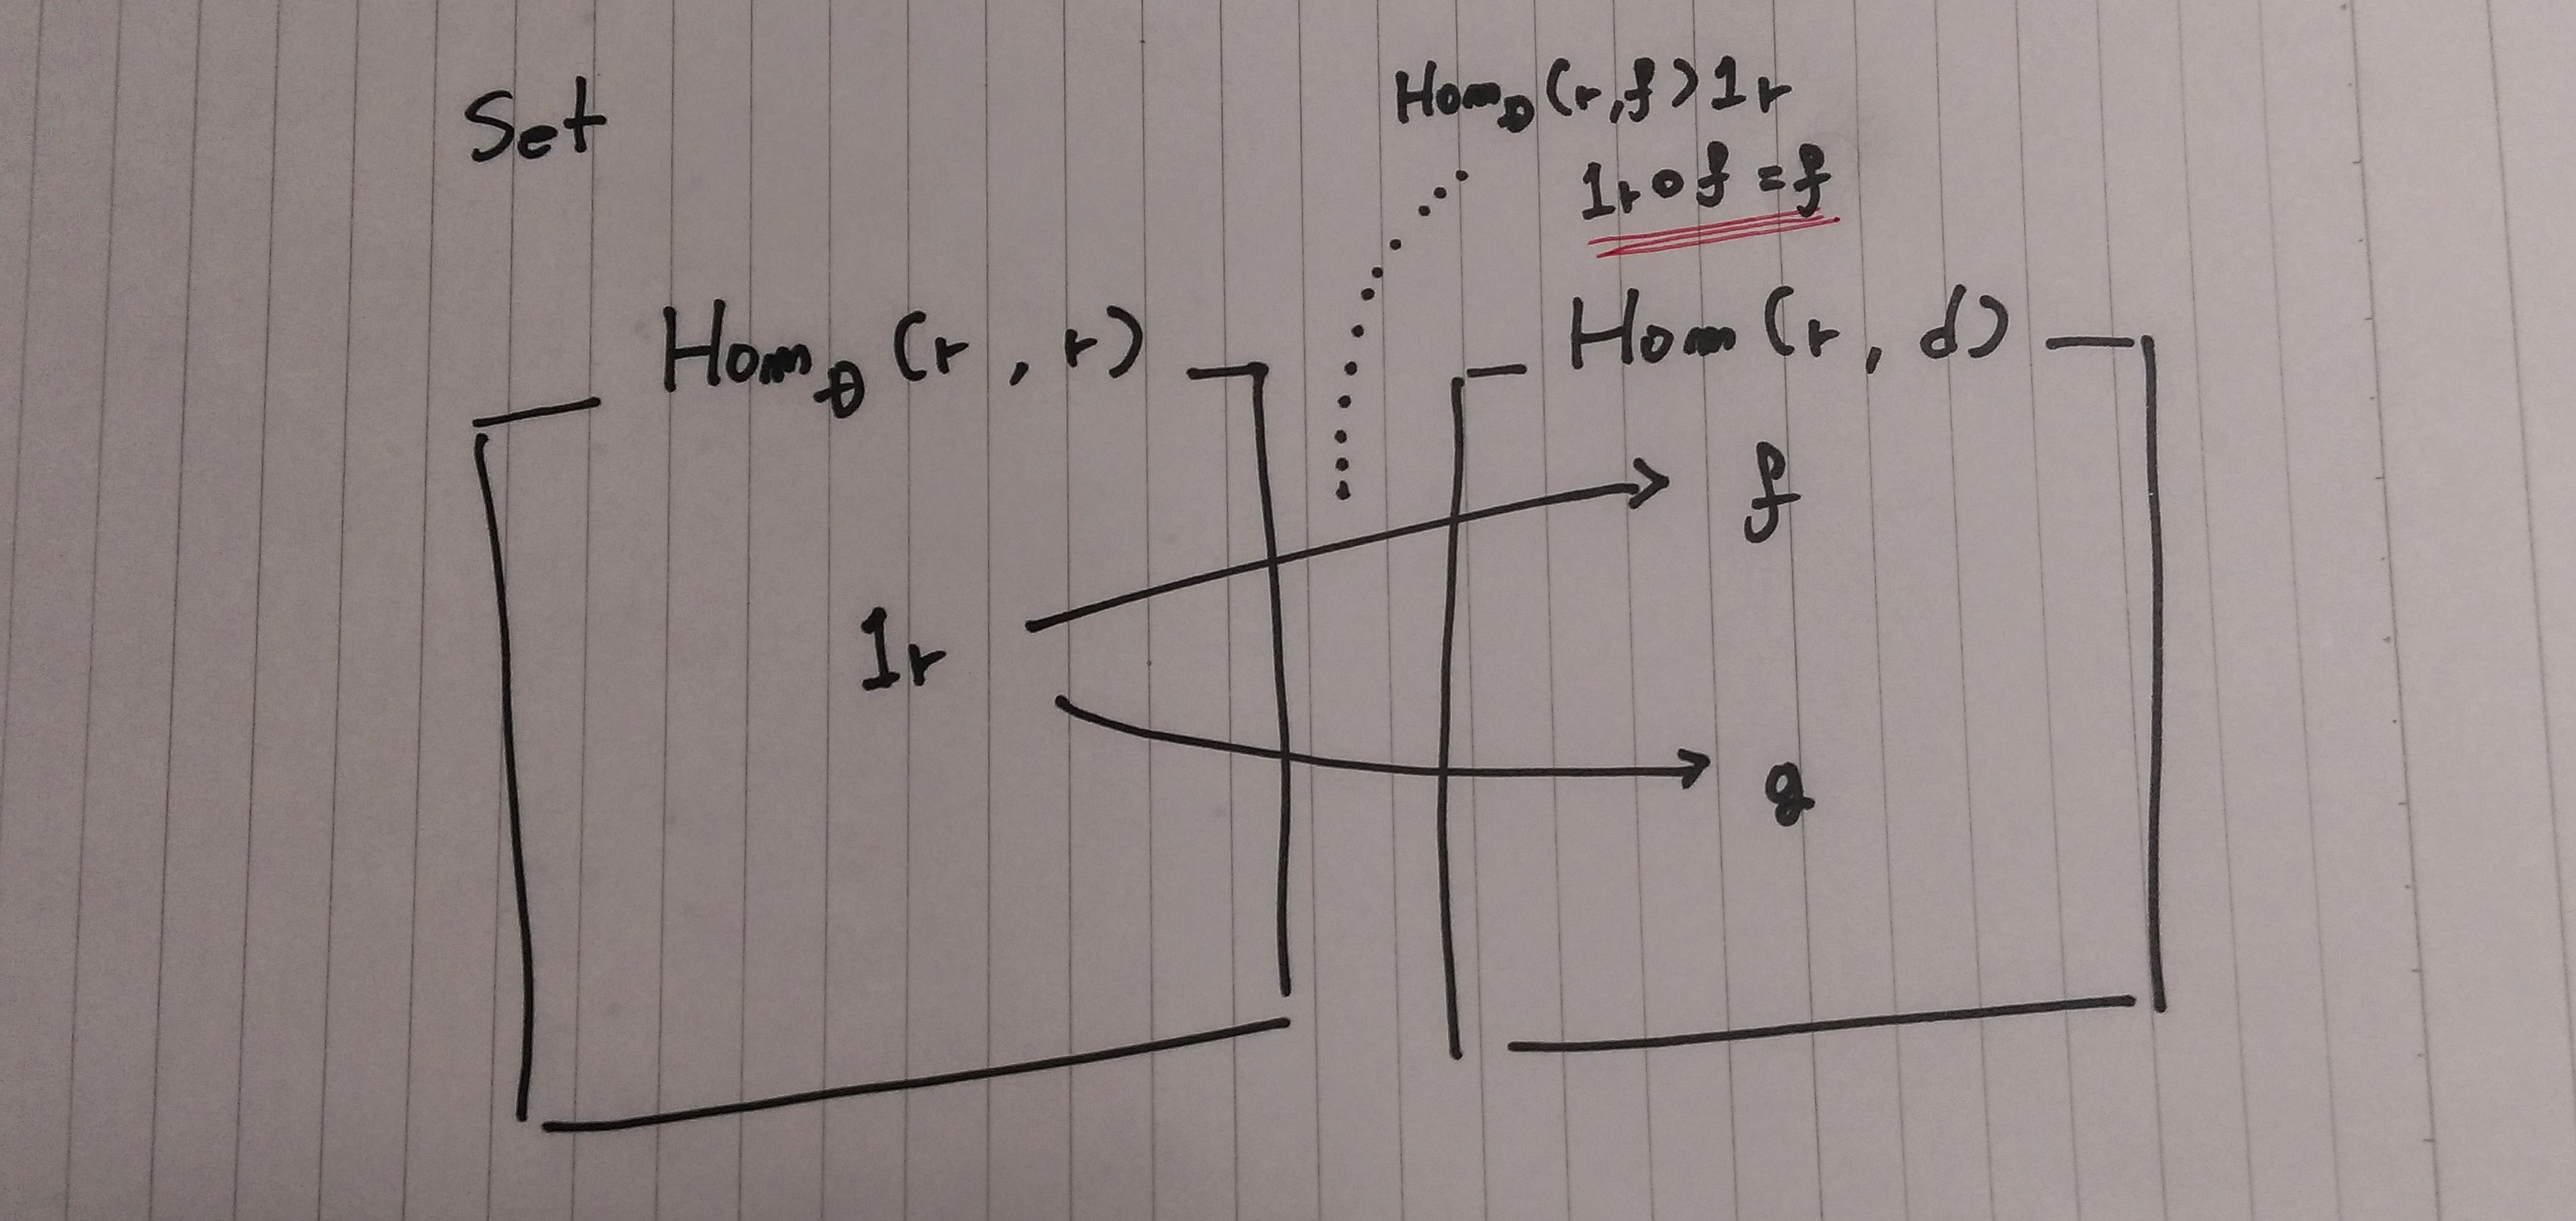 Set
Hom_D (r, f) 1r
1r ∘ f = f
Hom_D (r, r)
Hom (r, d)
f
1r
g